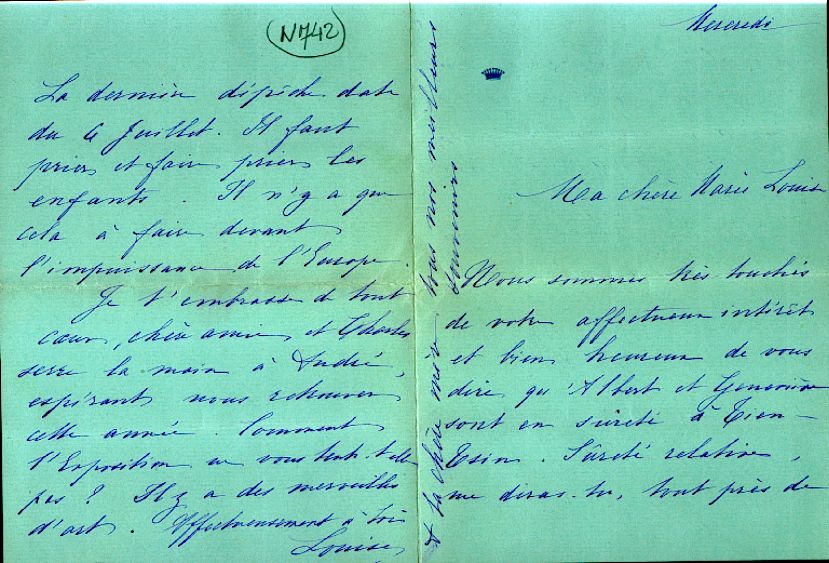 Mercredi
Ma chère Marie Louise
Nous sommes très touchés
de votre affectueux intérêt
et bien heureux de vous
dire qu'Albert et Geneviève
sont en sûreté à Tien-
Tsin. Sûreté relative,
me diras-tu, tout près de
N742
La dernière dépêche date
du 6 Juillet. Il faut
prier et faire prier les
enfants. Il n'y a que
cela à faire devant
l'impuissance de l'Europe.
Je t'embrasse de tout
cœur, chère amie et Charles
serre la main à André,
espérant vous retrouver
cette année. Comment
l'Exposition ne vous tente-t-elle
pas? Il y a des merveilles
d'art. Affectueusement à toi
Louise
A ta chère mère tous nos meilleurs
souvenirs